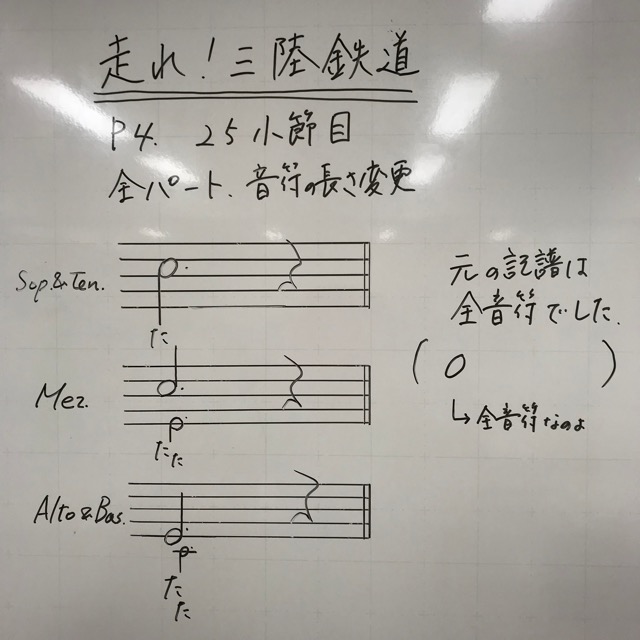 走れ！三陸鉄道
P4. 25小節目
全パート、音符の長さ変更
Sop&Ten.
た
元の記譜は
全音符でした.
( O )
↳全音符なのよ
Mez.
た
た
Alto&Bas.
た
た